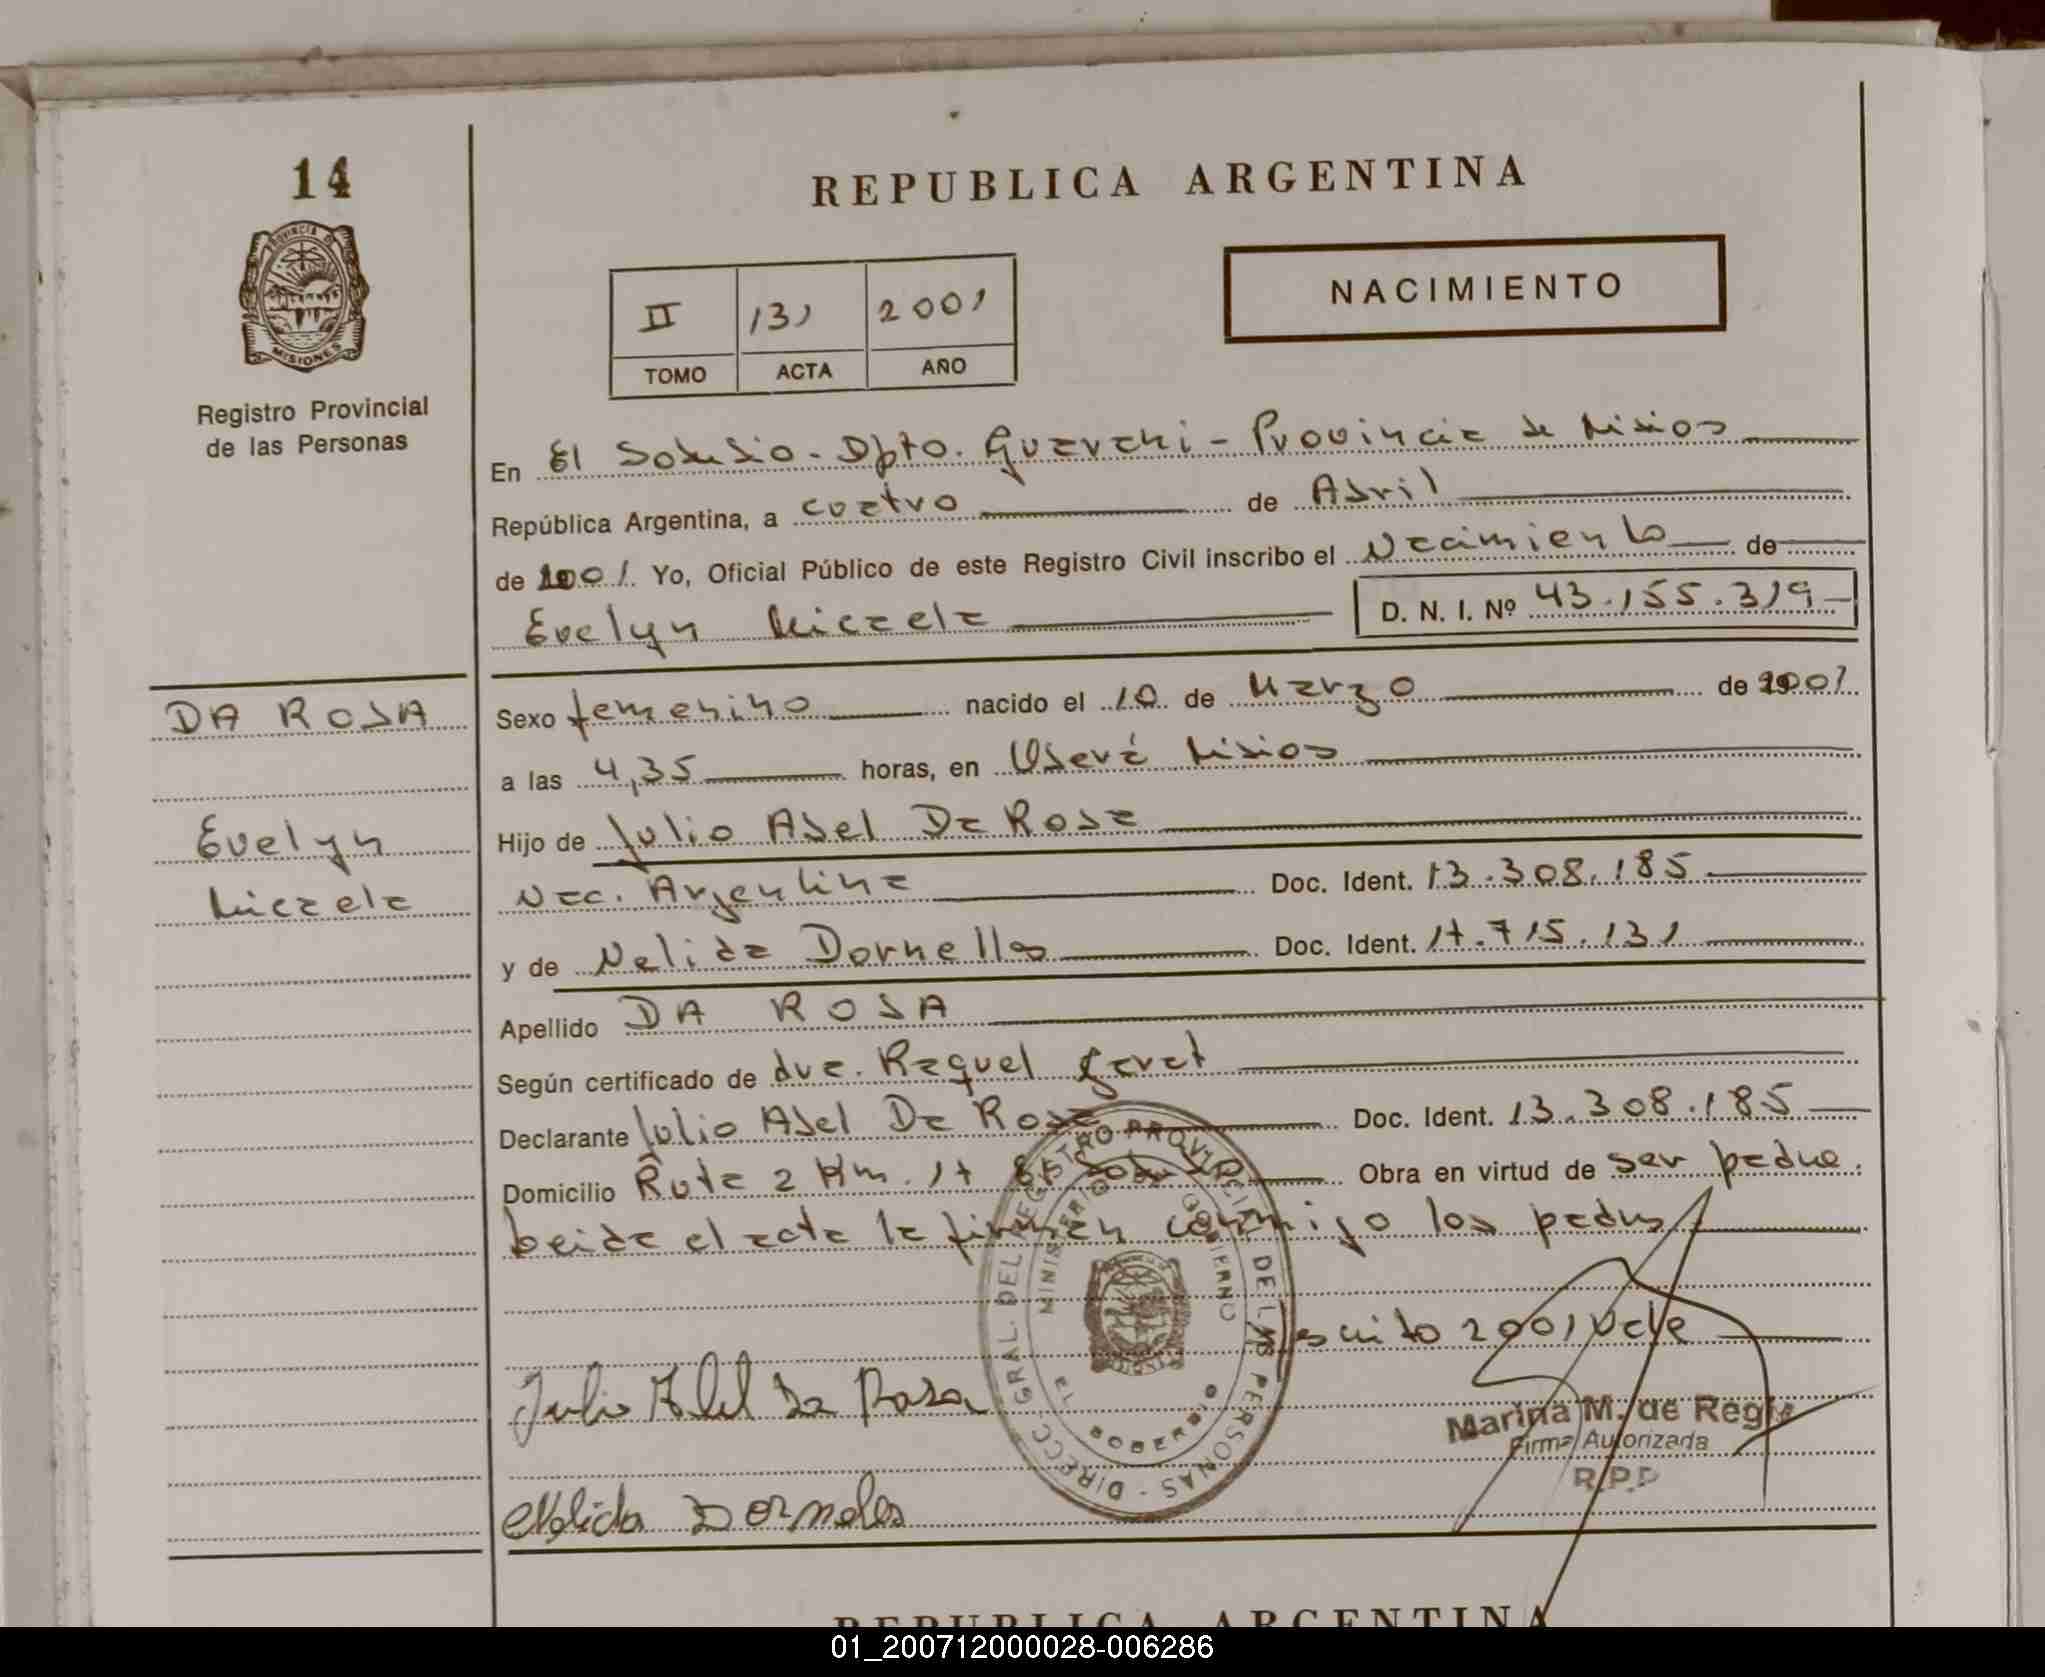 14
REPUBLICA ARGENTINA
PROVINCIA DE
MISIONES
Registro Provincial
de las Personas
NACIMIENTO
II 131 2001
TOMO ACTA AÑO
En El Soberbio - Dpto. Guarani - Provincia de Misiones
República Argentina, a cuatro de Abril
de 2001. Yo, Oficial Público de este Registro Civil inscribo el Nacimiento de
Evelyn Micaela D. N. I. Nº 43.155.319
DA ROSA
Evelyn
Micaela
Sexo femenino nacido el 10 de Marzo de 2001
a las 4,35 horas, en Oberá Misiones
Hijo de Julio Abel Da Rosa
Nac. Argentina Doc. Ident. 13.308.185
y de Nelida Dornelles Doc. Ident. 17.715.131
Apellido DA ROSA
Según certificado de dra. Raquel
Declarante Julio Abel Da Rosa Doc. Ident. 13.308.185
Domicilio Ruta 2 Km. 17 El Soberbio Obra en virtud de ser padre.
Leida el acta la firman conmigo los padres
escrito 2001 Vale
Julio Abel Da Rosa
Nelida Dorneles
DIRECC. GRAL. DEL REGISTRO PROVINCIAL DE LAS PERSONAS
MINISTERIO DE GOBIERNO
EL SOBERBIO
Marina M. de Regis
Firma Autorizada
R.P.P
REPUBLICA ARGENTINA
01_200712000028-006286